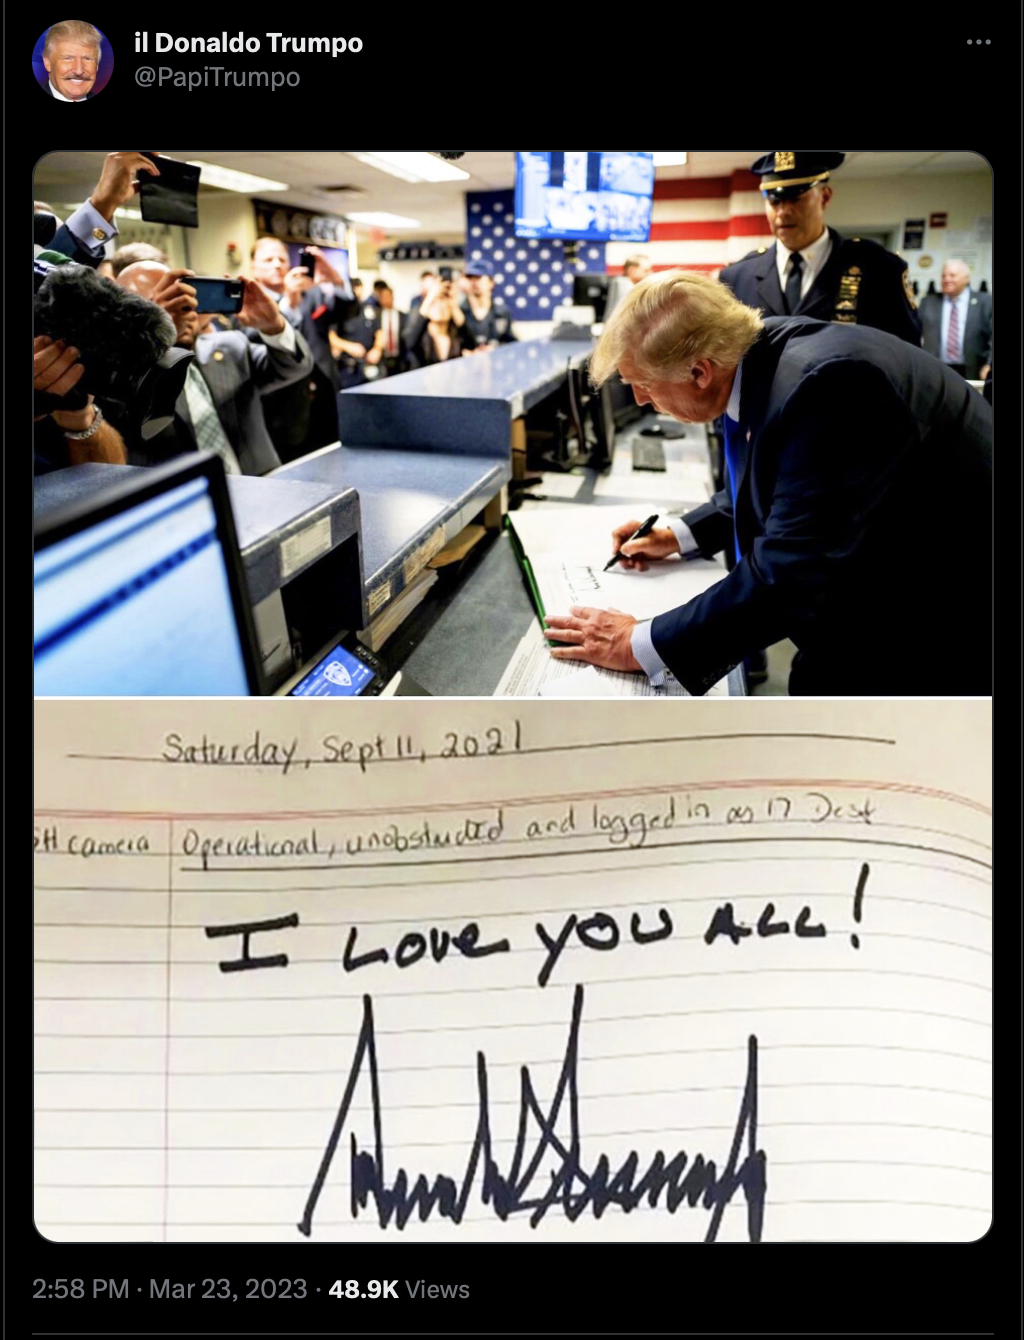 il Donaldo Trumpo
@PapiTrumpo
Saturday, Sept 11, 2021
SH camera Operational, unobstructed and logged in as 17 Desk
I LOVE YOU ALL!
2:58 PM · Mar 23, 2023 · 48.9K Views